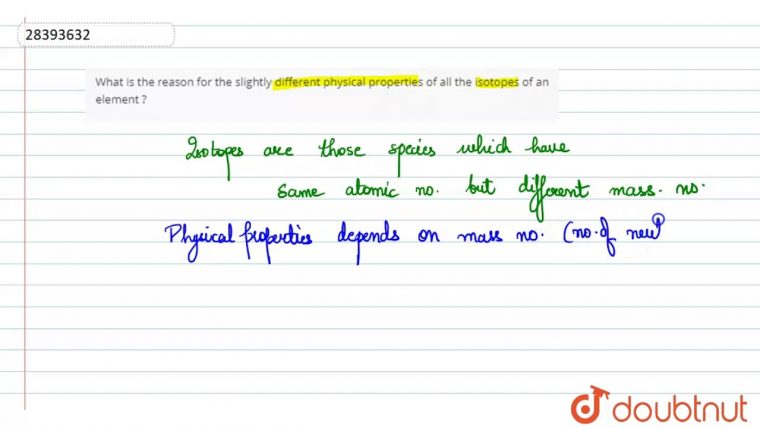 28393632
What is the reason for the slightly different physical properties of all the isotopes of an
element ?
Isotopes are those species which have
same atomic no. but different mass. no.
Physical properties depends on mass no. (no. of neut
doubtnut